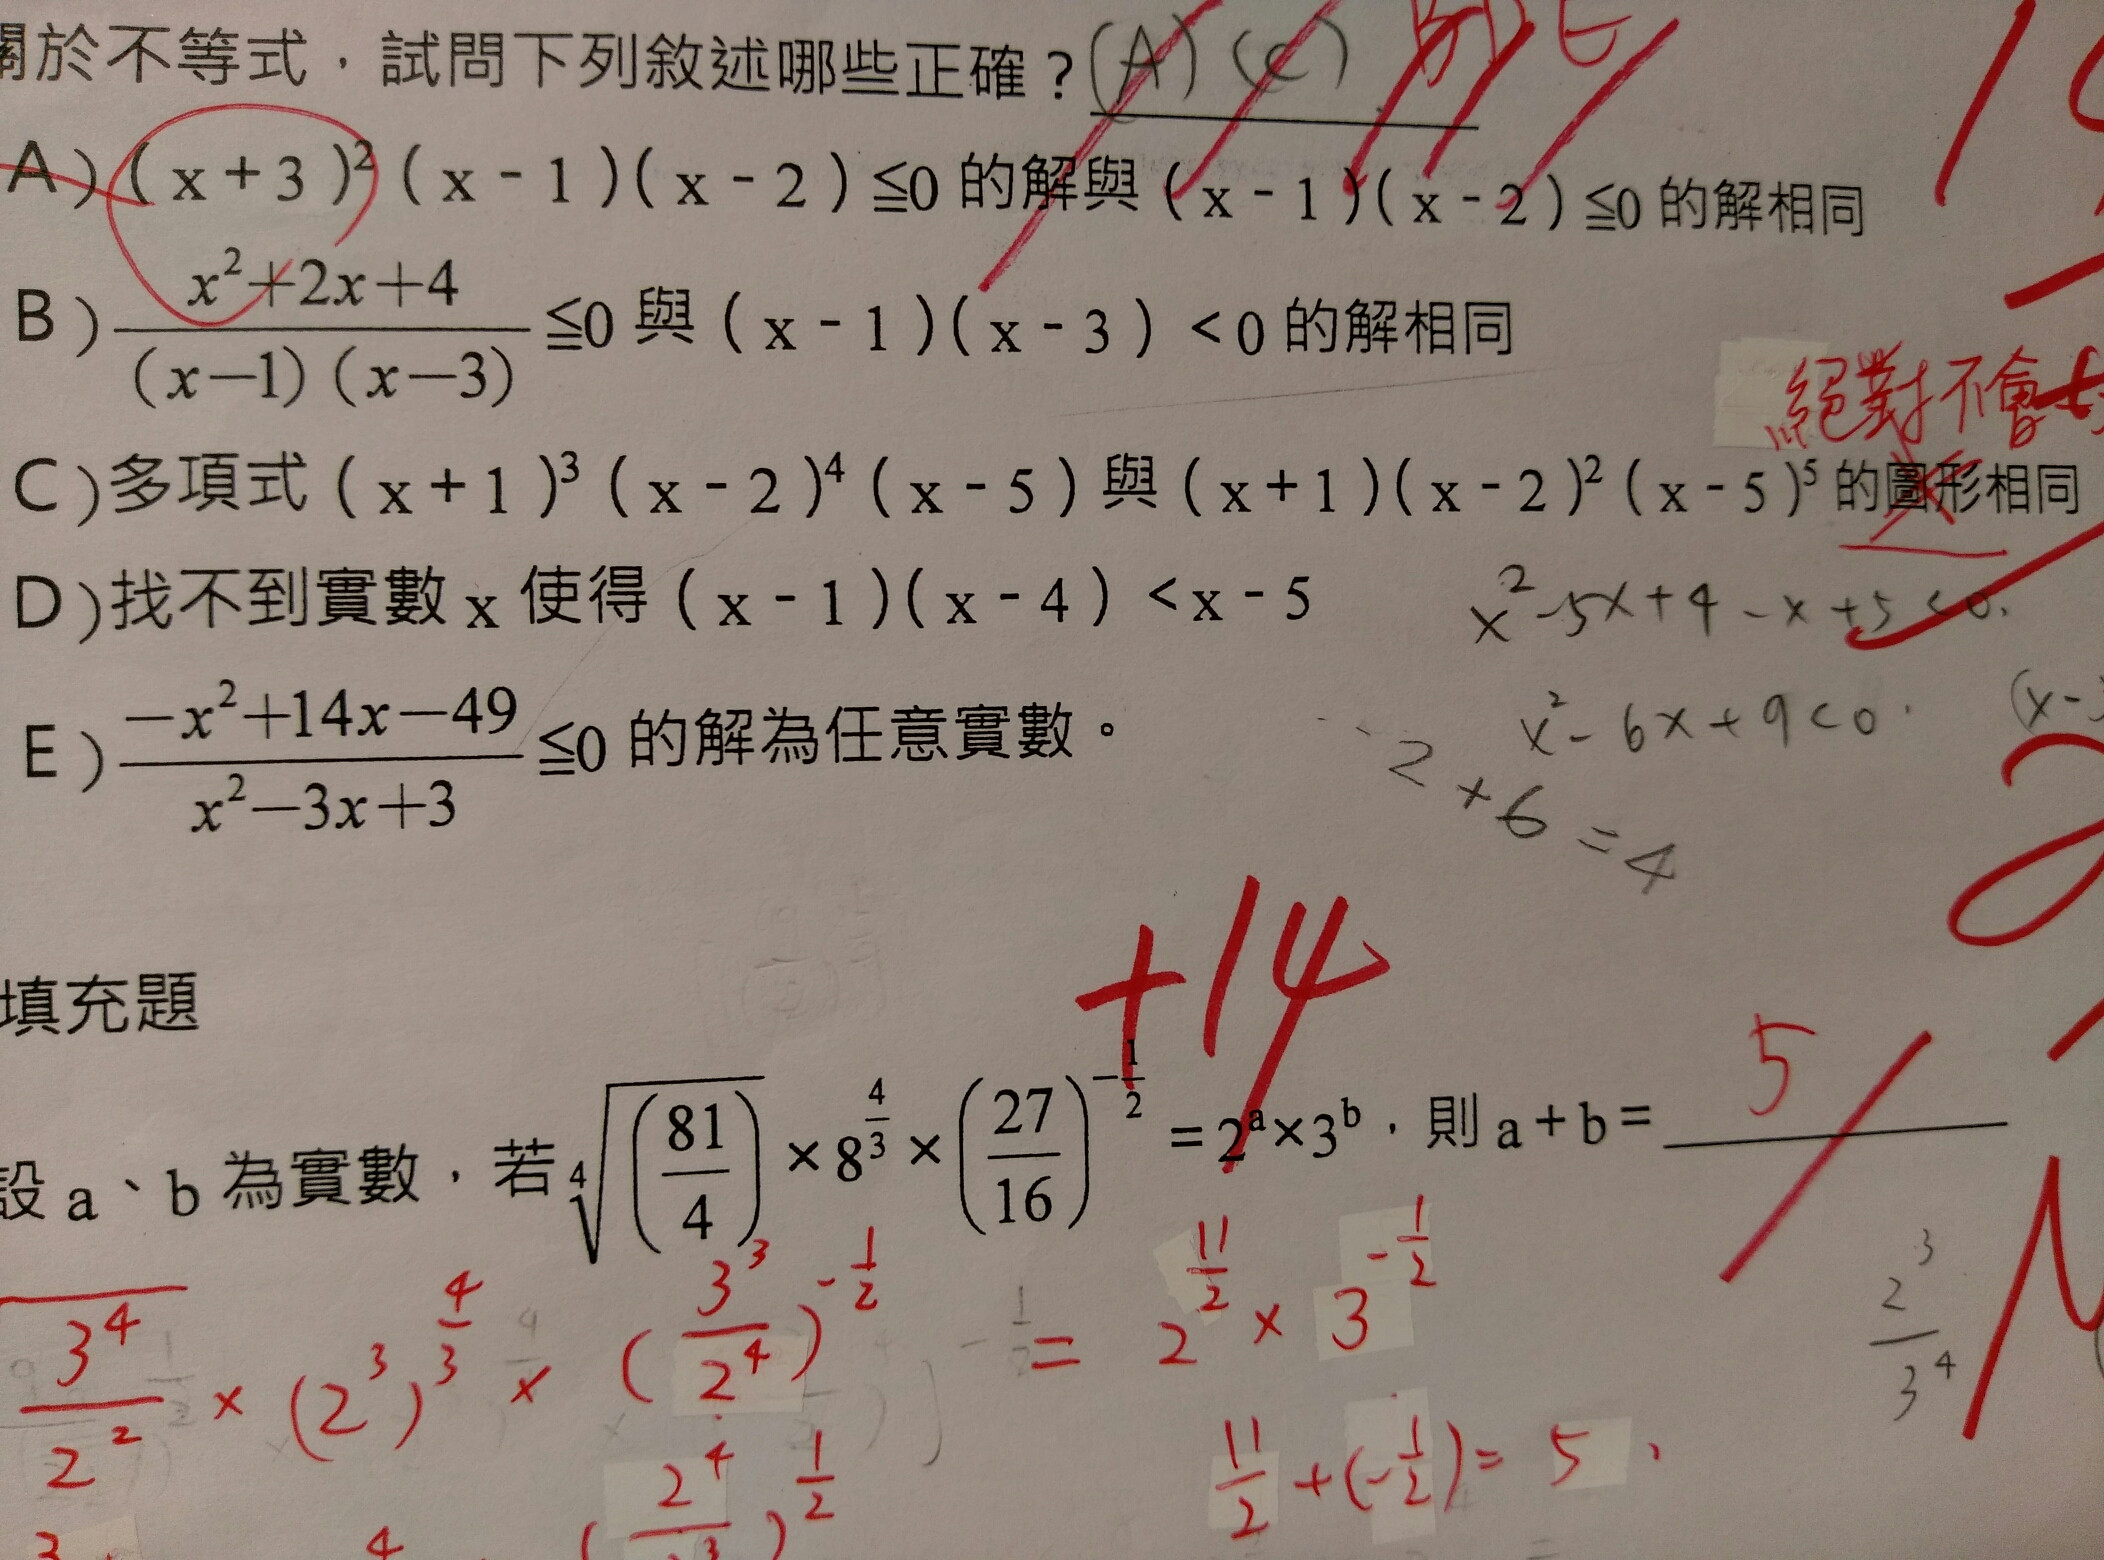 關於不等式，試問下列敘述哪些正確？(A)(C) BDE
A)(x+3)²(x-1)(x-2)≦0 的解與(x-1)(x-2)≦0 的解相同
B) (x²+2x+4)/((x-1)(x-3)) ≦0 與(x-1)(x-3)<0 的解相同
絕對不會
C)多項式(x+1)³(x-2)⁴(x-5)與(x+1)(x-2)²(x-5)⁵的圖形相同
D)找不到實數 x 使得(x-1)(x-4)<x-5
x²-5x+4-x+5<0.
E) (-x²+14x-49)/(x²-3x+3) ≦0 的解為任意實數。
x²-6x+9<0.
2+6=4
+14
填充題
設 a、b 為實數，若 ⁴√(81/4) × 8^(4/3) × (27/16)^(-1/2) = 2^a×3^b，則 a+b= 5
3⁴/2² × (2³)^(4/3) × (3³/2⁴)^(-1/2) = 2^(11/2) × 3^(-1/2)
2³/3⁴
11/2+(-1/2)=5